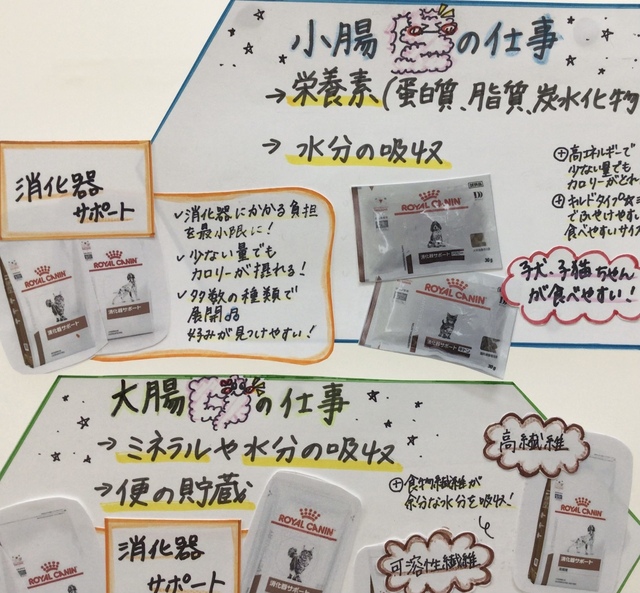 小腸の仕事
→栄養素(蛋白質、脂質、炭水化物
→水分の吸収
消化器
サポート
✓消化器にかかる負担
を最小限に!
✓少ない量でも
カロリーが摂れる!
✓多数の種類で
展開
好みが見つけやすい!
⊕高エネルギーで
少ない量でも
カロリーがとれ
⊕キルドタイプ
でふせけやす
食べやすいサイズ
子犬・子猫ちゃん
が食べやすい!
ROYAL CANIN
消化器サポート
ROYAL CANIN
消化器サポート
ROYAL CANIN
消化器サポート
ROYAL CANIN
消化器サポート
大腸の仕事
→ミネラルや水分の吸収
→便の貯蔵
⊕食物繊維が
余分な水分を吸収!
高繊維
可溶性繊維
消化器
サポート
ROYAL CANIN
ROYAL CANIN
消化器サポート
ROYAL CANIN
消化器サポート